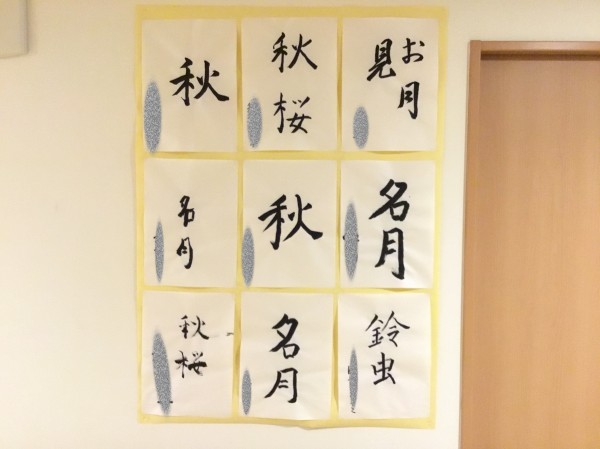 秋
秋桜
お月
見
名月
秋
名月
秋桜
名月
鈴虫